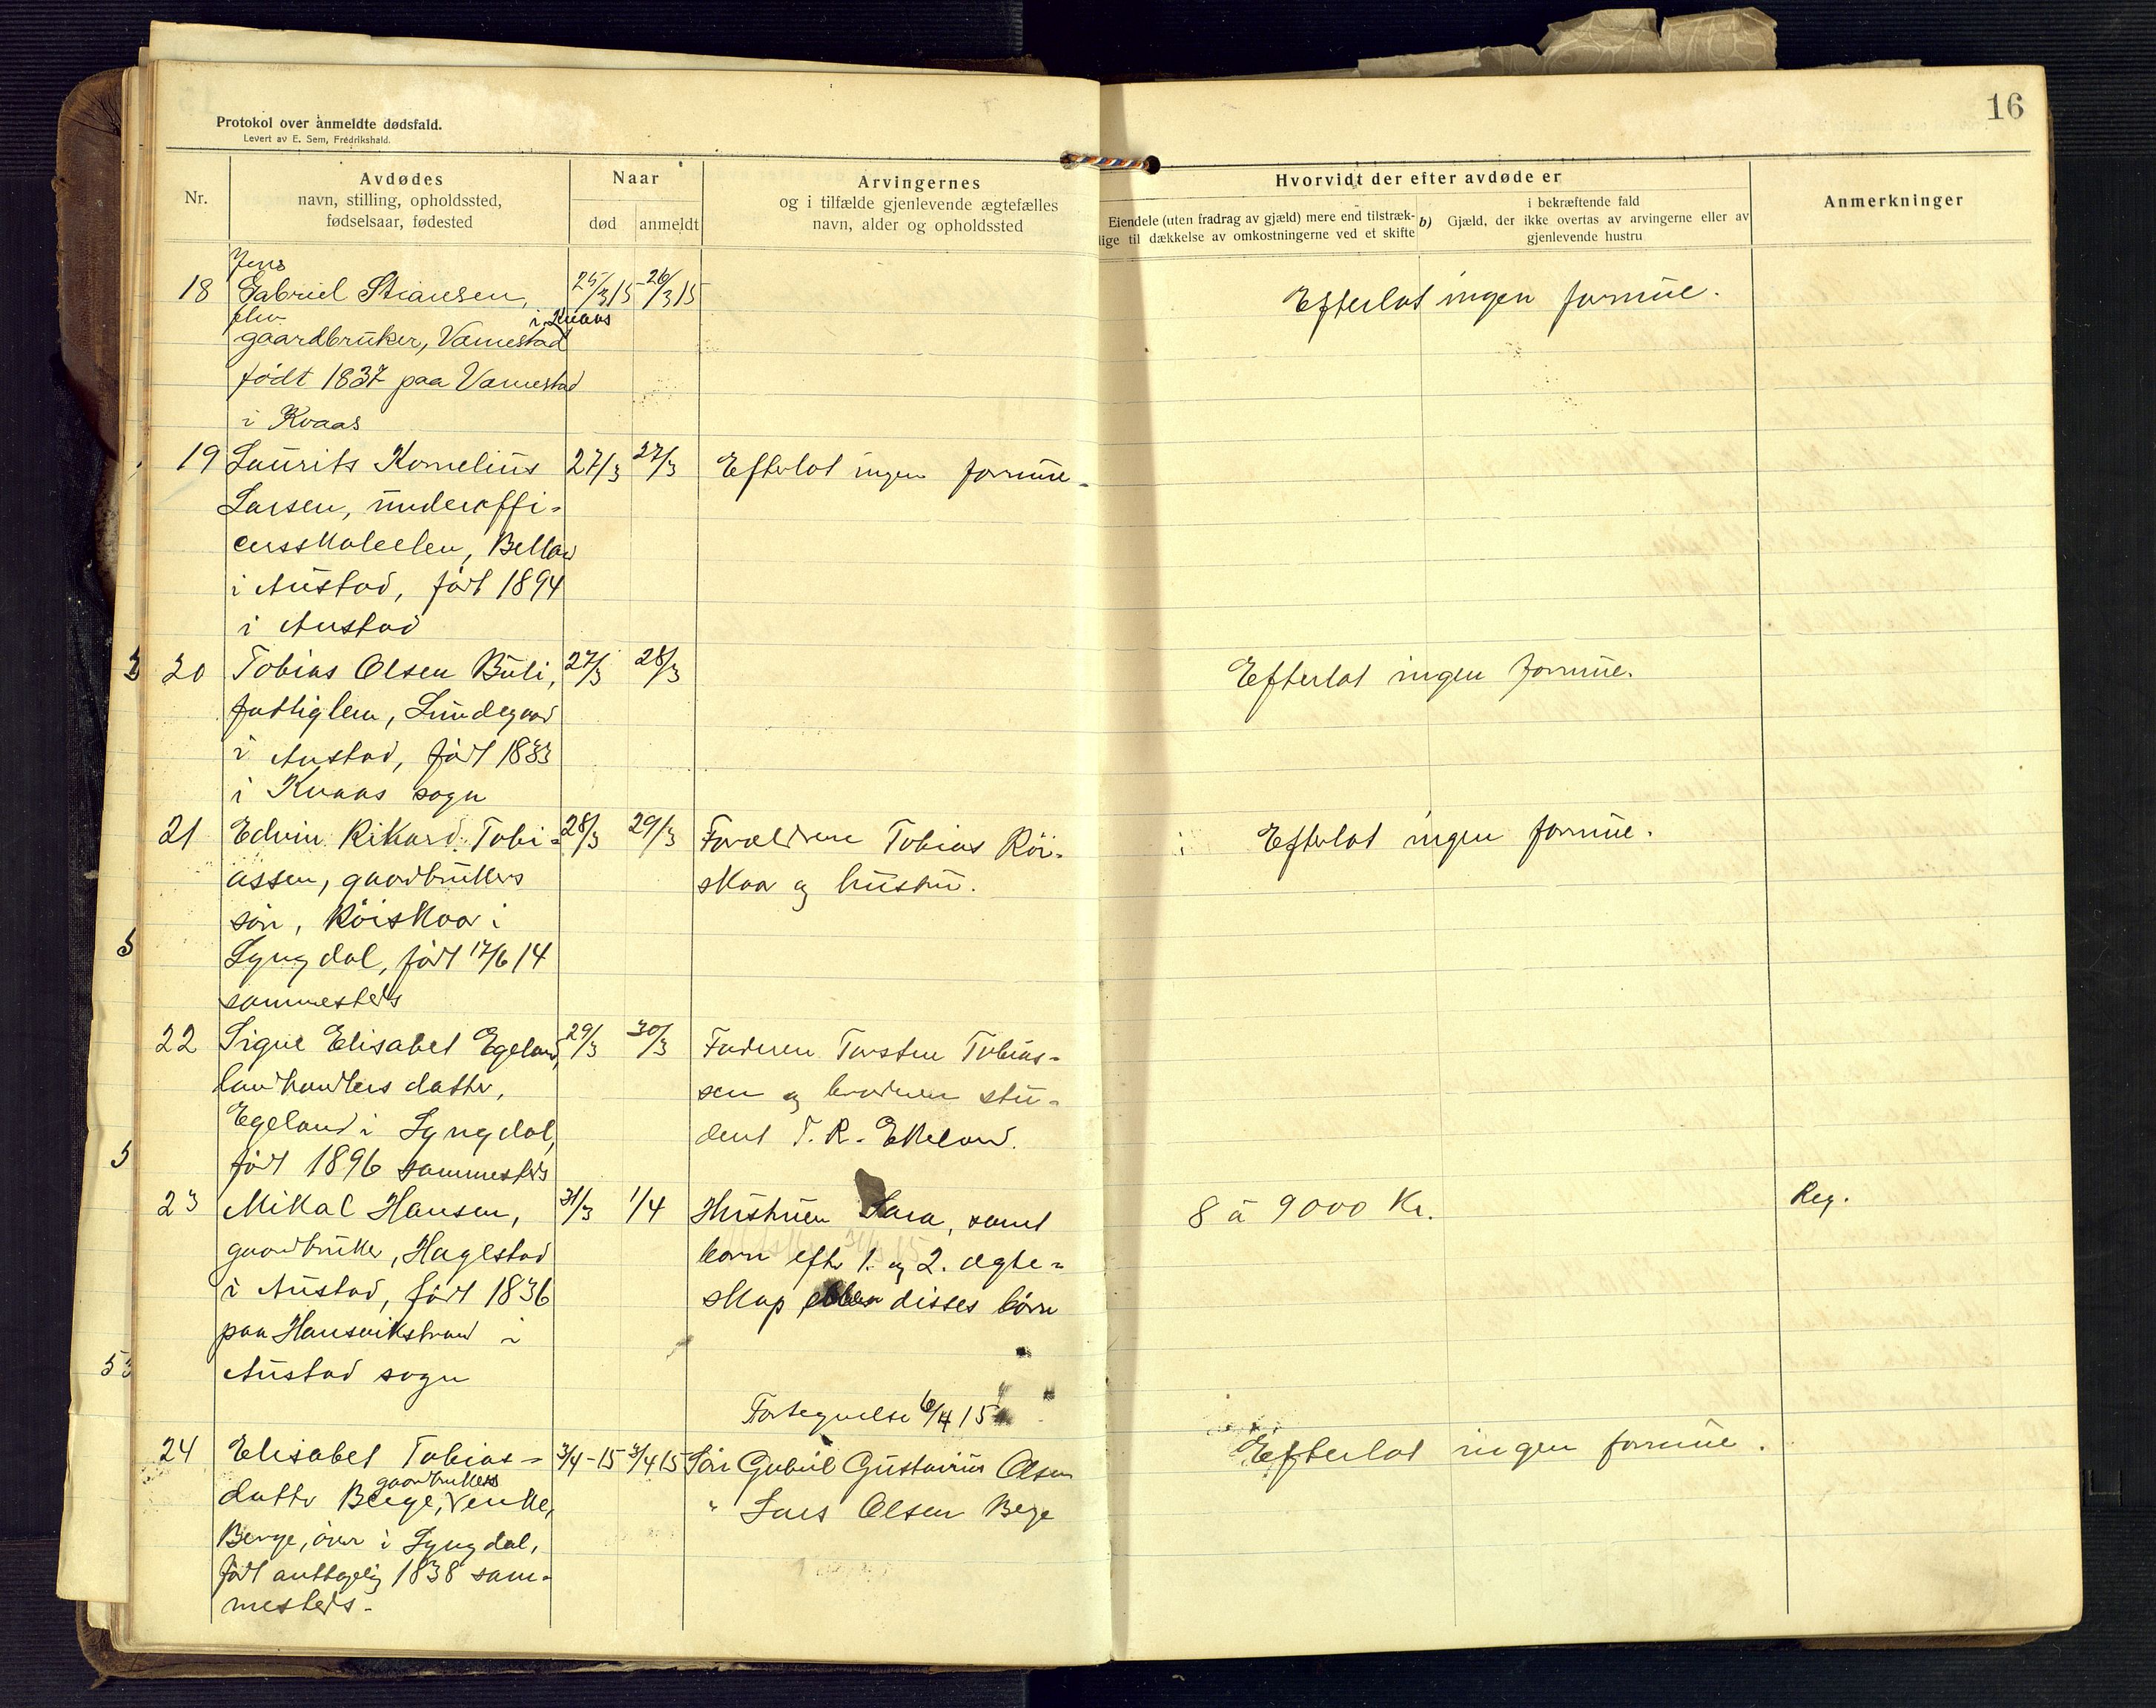 16
Protokol over anmeldte dødsfald.
Levert av E. Sem, Fredrikshald.
Nr.
Avdødes
navn, stilling, opholdssted,
fødselsaar, fødested
Naar
død
anmeldt
Arvingernes
og i tilfælde gjenlevende ægtefælles
navn, alder og opholdssted
Hvorvidt der efter avdøde er
Eiendele (uten fradrag av gjæld) mere end tilstræk-
lige til dækkelse av omkostningerne ved et skifte
b) Gjæld, der ikke overtas av arvingerne eller av
i bekræftende fald
gjenlevende hustru
Anmerkninger
Jens
18 Gabriel Stiansen, 25/3 15 26/3 15 Efterlot ingen formue.
i Kvaas
gaardbruker, Vamestad
født 1837 paa Vamestad
i Kvaas
19 Laurits Kornelius 27/3 27/3 Efterlot ingen formue.
Larsen, underoffi-
cersskoleelev, Belland
i Austad, født 1894
i Austad
20 Tobias Olsen Buli, 27/3 28/3 Efterlot ingen formue.
fattiglem, Lundegaard
i Austad, født 1833
i Kvaas sogn
21 Edvin Rikard Tobi- 28/3 29/3 Forældrene Tobias Röi- Efterlot ingen formue.
assen, gaardbrukers skaar og hustru.
sön, Röiskaar i
Lyngdal, født 17/6 14
sammesteds
22 Signe Elisabet Egeland, 29/3 30/3 Faderen Torsten Tobias-
landhandlers datter, sen og broderen stu-
Egeland i Lyngdal, dent T. R. Ekeland.
født 1896 sammesteds
23 Mikal Hansen, 31/3 1/4 Hustruen Sara, samt 8 à 9000 Kr. Reg.
gaardbruker, Hagestad barn efter 1. og 2. ægte-
i Austad, født 1836 skap eller disses börn
paa Hansvikstrand i
Austad sogn
Fortegnelse 6/4 15
24 Elisabet Tobias- 3/4-15 3/4 15 Sön Gabriel Gustavius Olsen Efterlot ingen formue.
gaardbrukers
datter Berge, enke, " Lars Olsen Berge
Berge, övre i Lyngdal,
født antagelig 1838 sam-
mesteds.